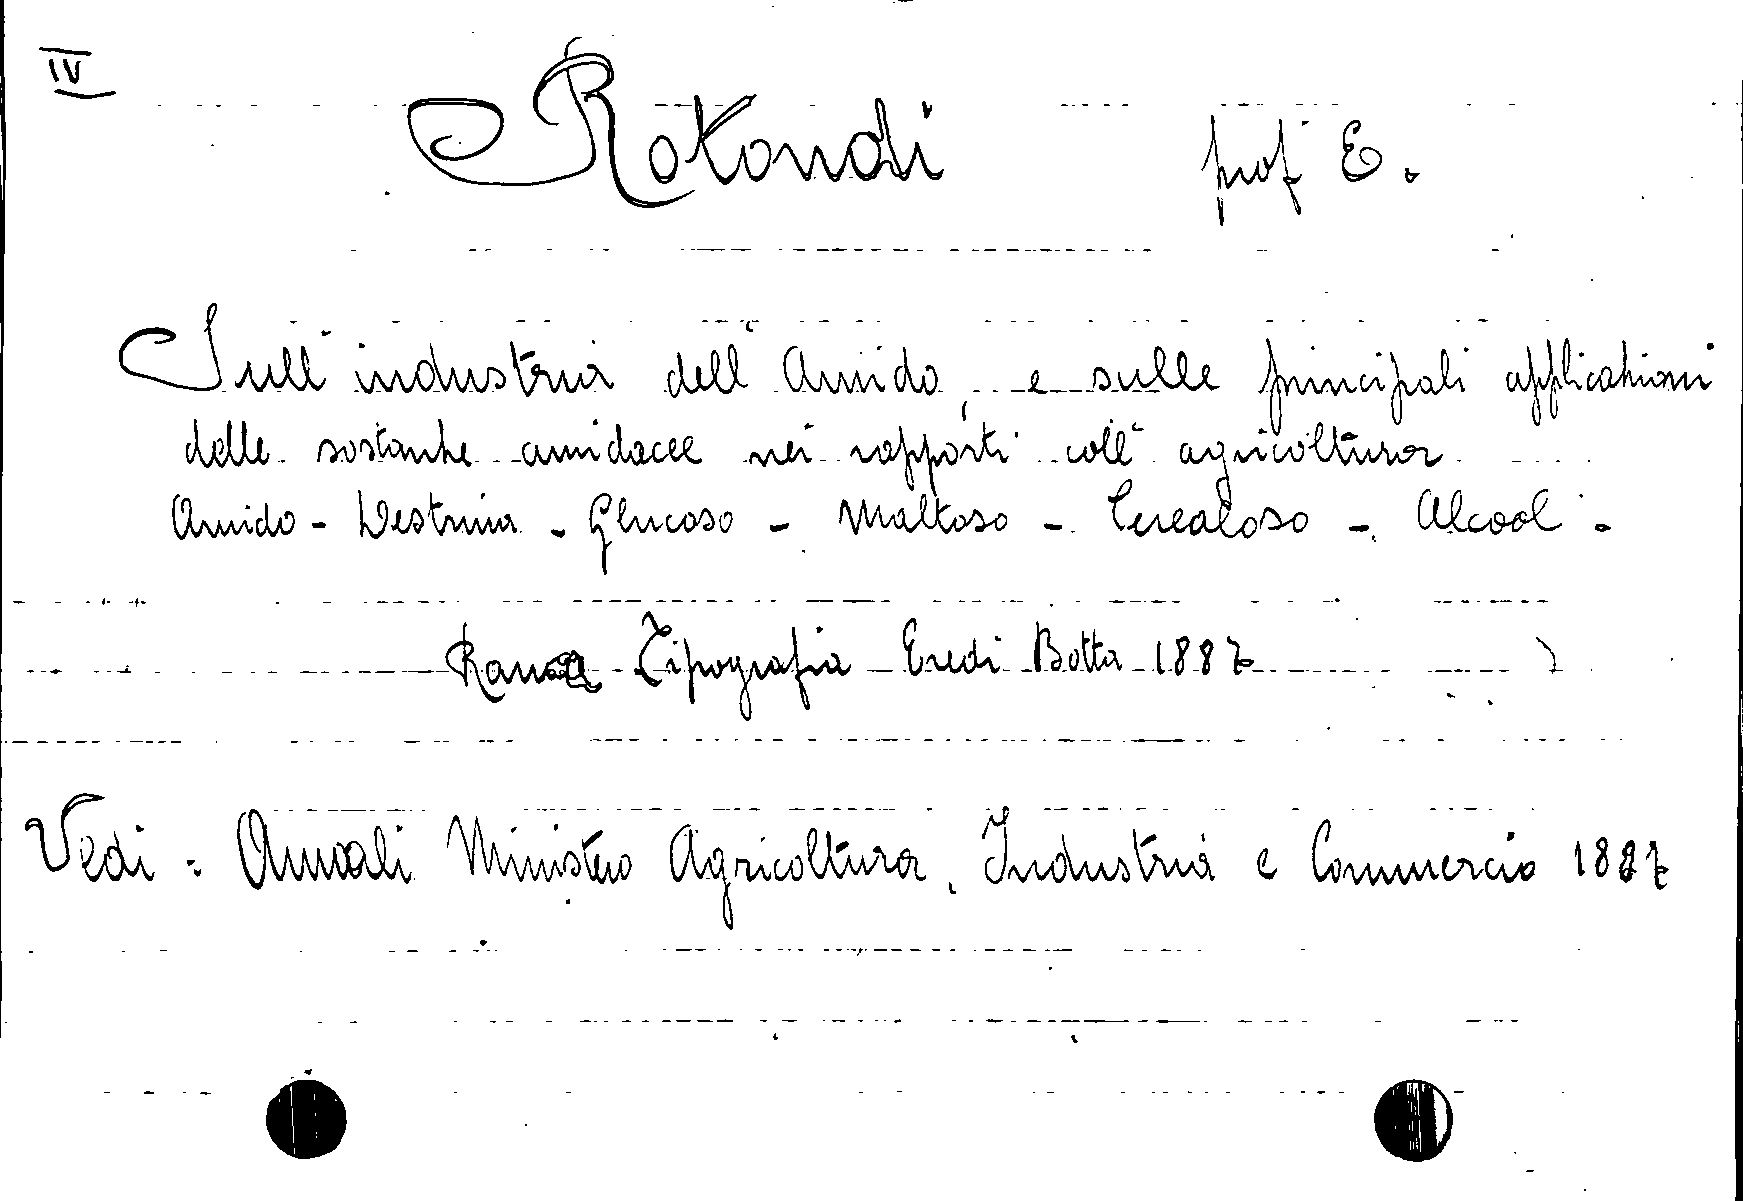 IV
Rotondi prof E.
Sull'industria dell'Amido, e sulle principali applicazioni
delle sostanze amidacee nei rapporti coll'agricoltura
Amido - Destrina - Glucoso - Maltoso - Cerealoso - Alcool -
Roma Tipografia Eredi Botta 1887
Vedi : Annali Ministero Agricoltura, Industria e Commercio 1887